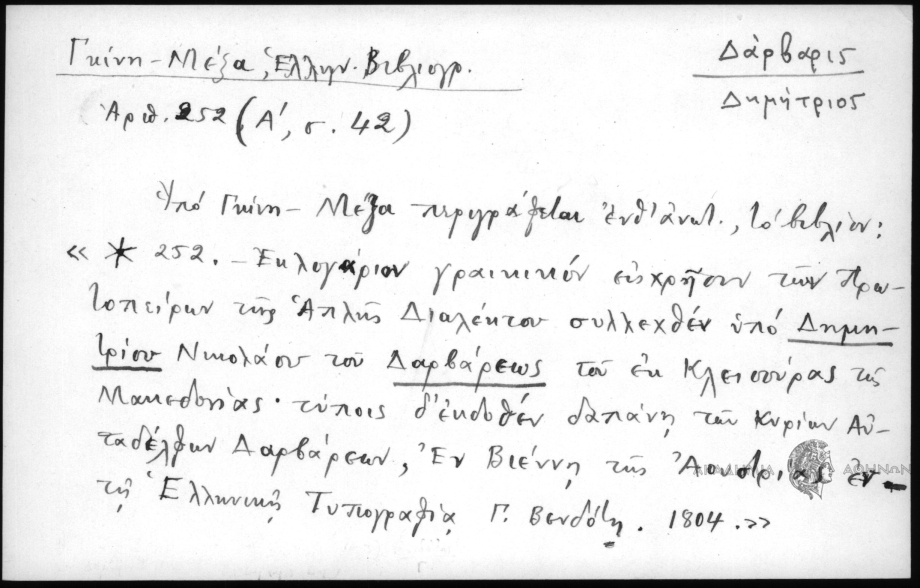 Γκίνη – Μέξα, Ἑλλην. Βιβλιογρ.
Δάρβαρις
Δημήτριος
Ἀριθ. 252 (Α΄, σ. 42)
Ὑπό Γκίνη – Μέξα περιγράφεται ἐνθ' ἀνωτ., τό βιβλίον:
« * 252. – Ἐκλογάριον γραικικόν εἰς χρῆσιν τῶν Πρω-
τοπείρων τῆς Ἁπλῆς Διαλέκτου συλλεχθέν ὑπό Δημη-
τρίου Νικολάου τοῦ Δαρβάρεως τοῦ ἐκ Κλεισούρας τῆς
Μακεδονίας · τύποις δ' ἐκδοθέν δαπάνῃ τῶν Κυρίων Αὐ-
ταδέλφων Δαρβάρεων, Ἐν Βιέννῃ τῆς Ἀουστρίας ἐν
τῇ Ἑλληνικῇ Τυπογραφίᾳ Γ. Βενδότη. 1804.»
ΑΚΑΔΗΜΙΑ ΑΘΗΝΩΝ